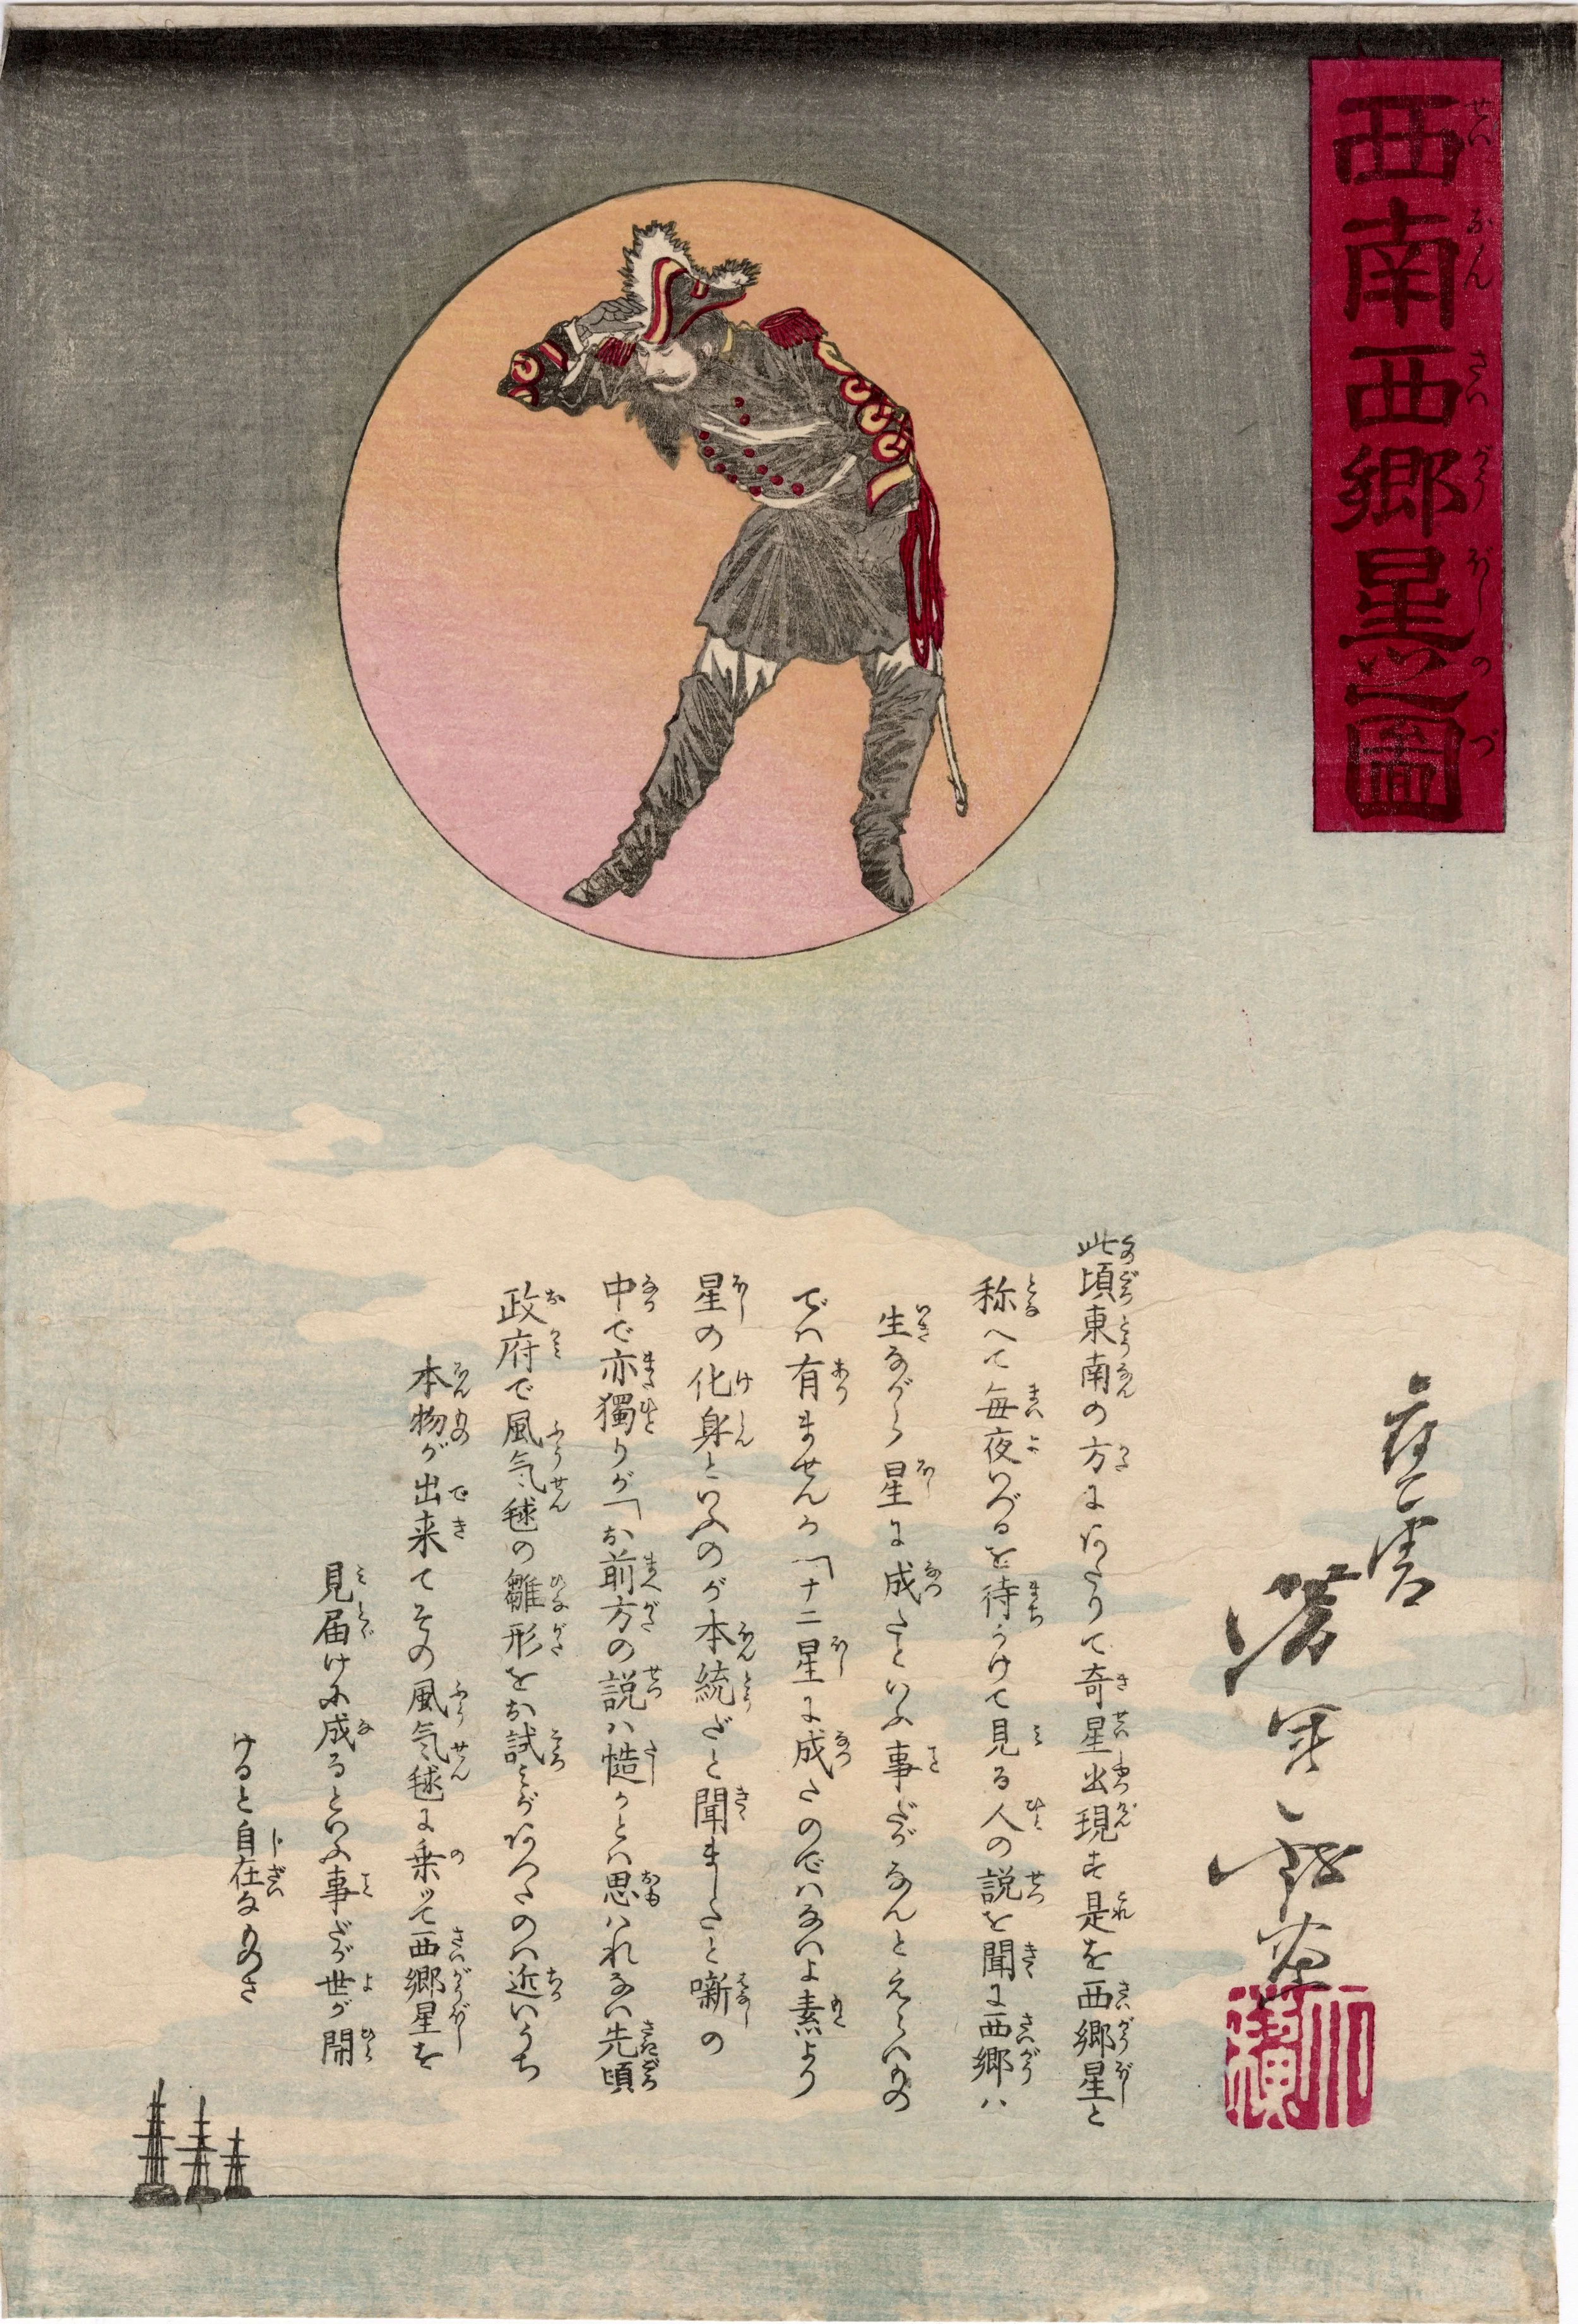 西南西郷星之圖
此頃東南の方にあたりて奇星出現す是を西郷星と
称へて毎夜いづるを待うけて見る人の説を聞に西郷ハ
生ながら星に成たといふ事だがなんとえらいもの
でハ有ませんか「十二星に成たのでハないよ素より
星の化身といふのが本統だと聞ましたと噺の
中で亦獨りが「お前方の説ハ慥かとハ思ハれない先頃
政府で風気毬の雛形をお試みがあつたのハ近いうち
本物が出来てその風気毬に乗ッて西郷星を
見届けに成るといふ事だが世が開
けると自在なものさ
應需